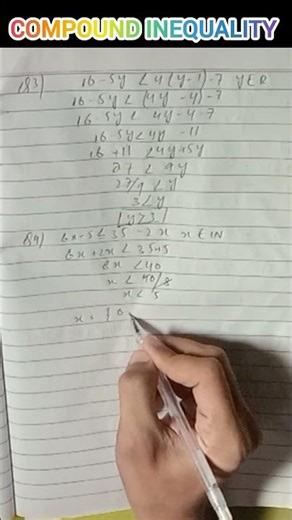 COMPOUND INEQUALITY
183) 16-5y < 4(y-1)-7 y∈R
16-5y < (4y-4)-7
16-5y < 4y-4-7
16-5y<4y-11
16+11 <4y+5y
27 < 9y
27/9 < y
3<y
y>3
84) 6x-5<35-2x x∈IN
6x+2x < 35+5
8x <40
x < 40/8
x < 5
x = {0